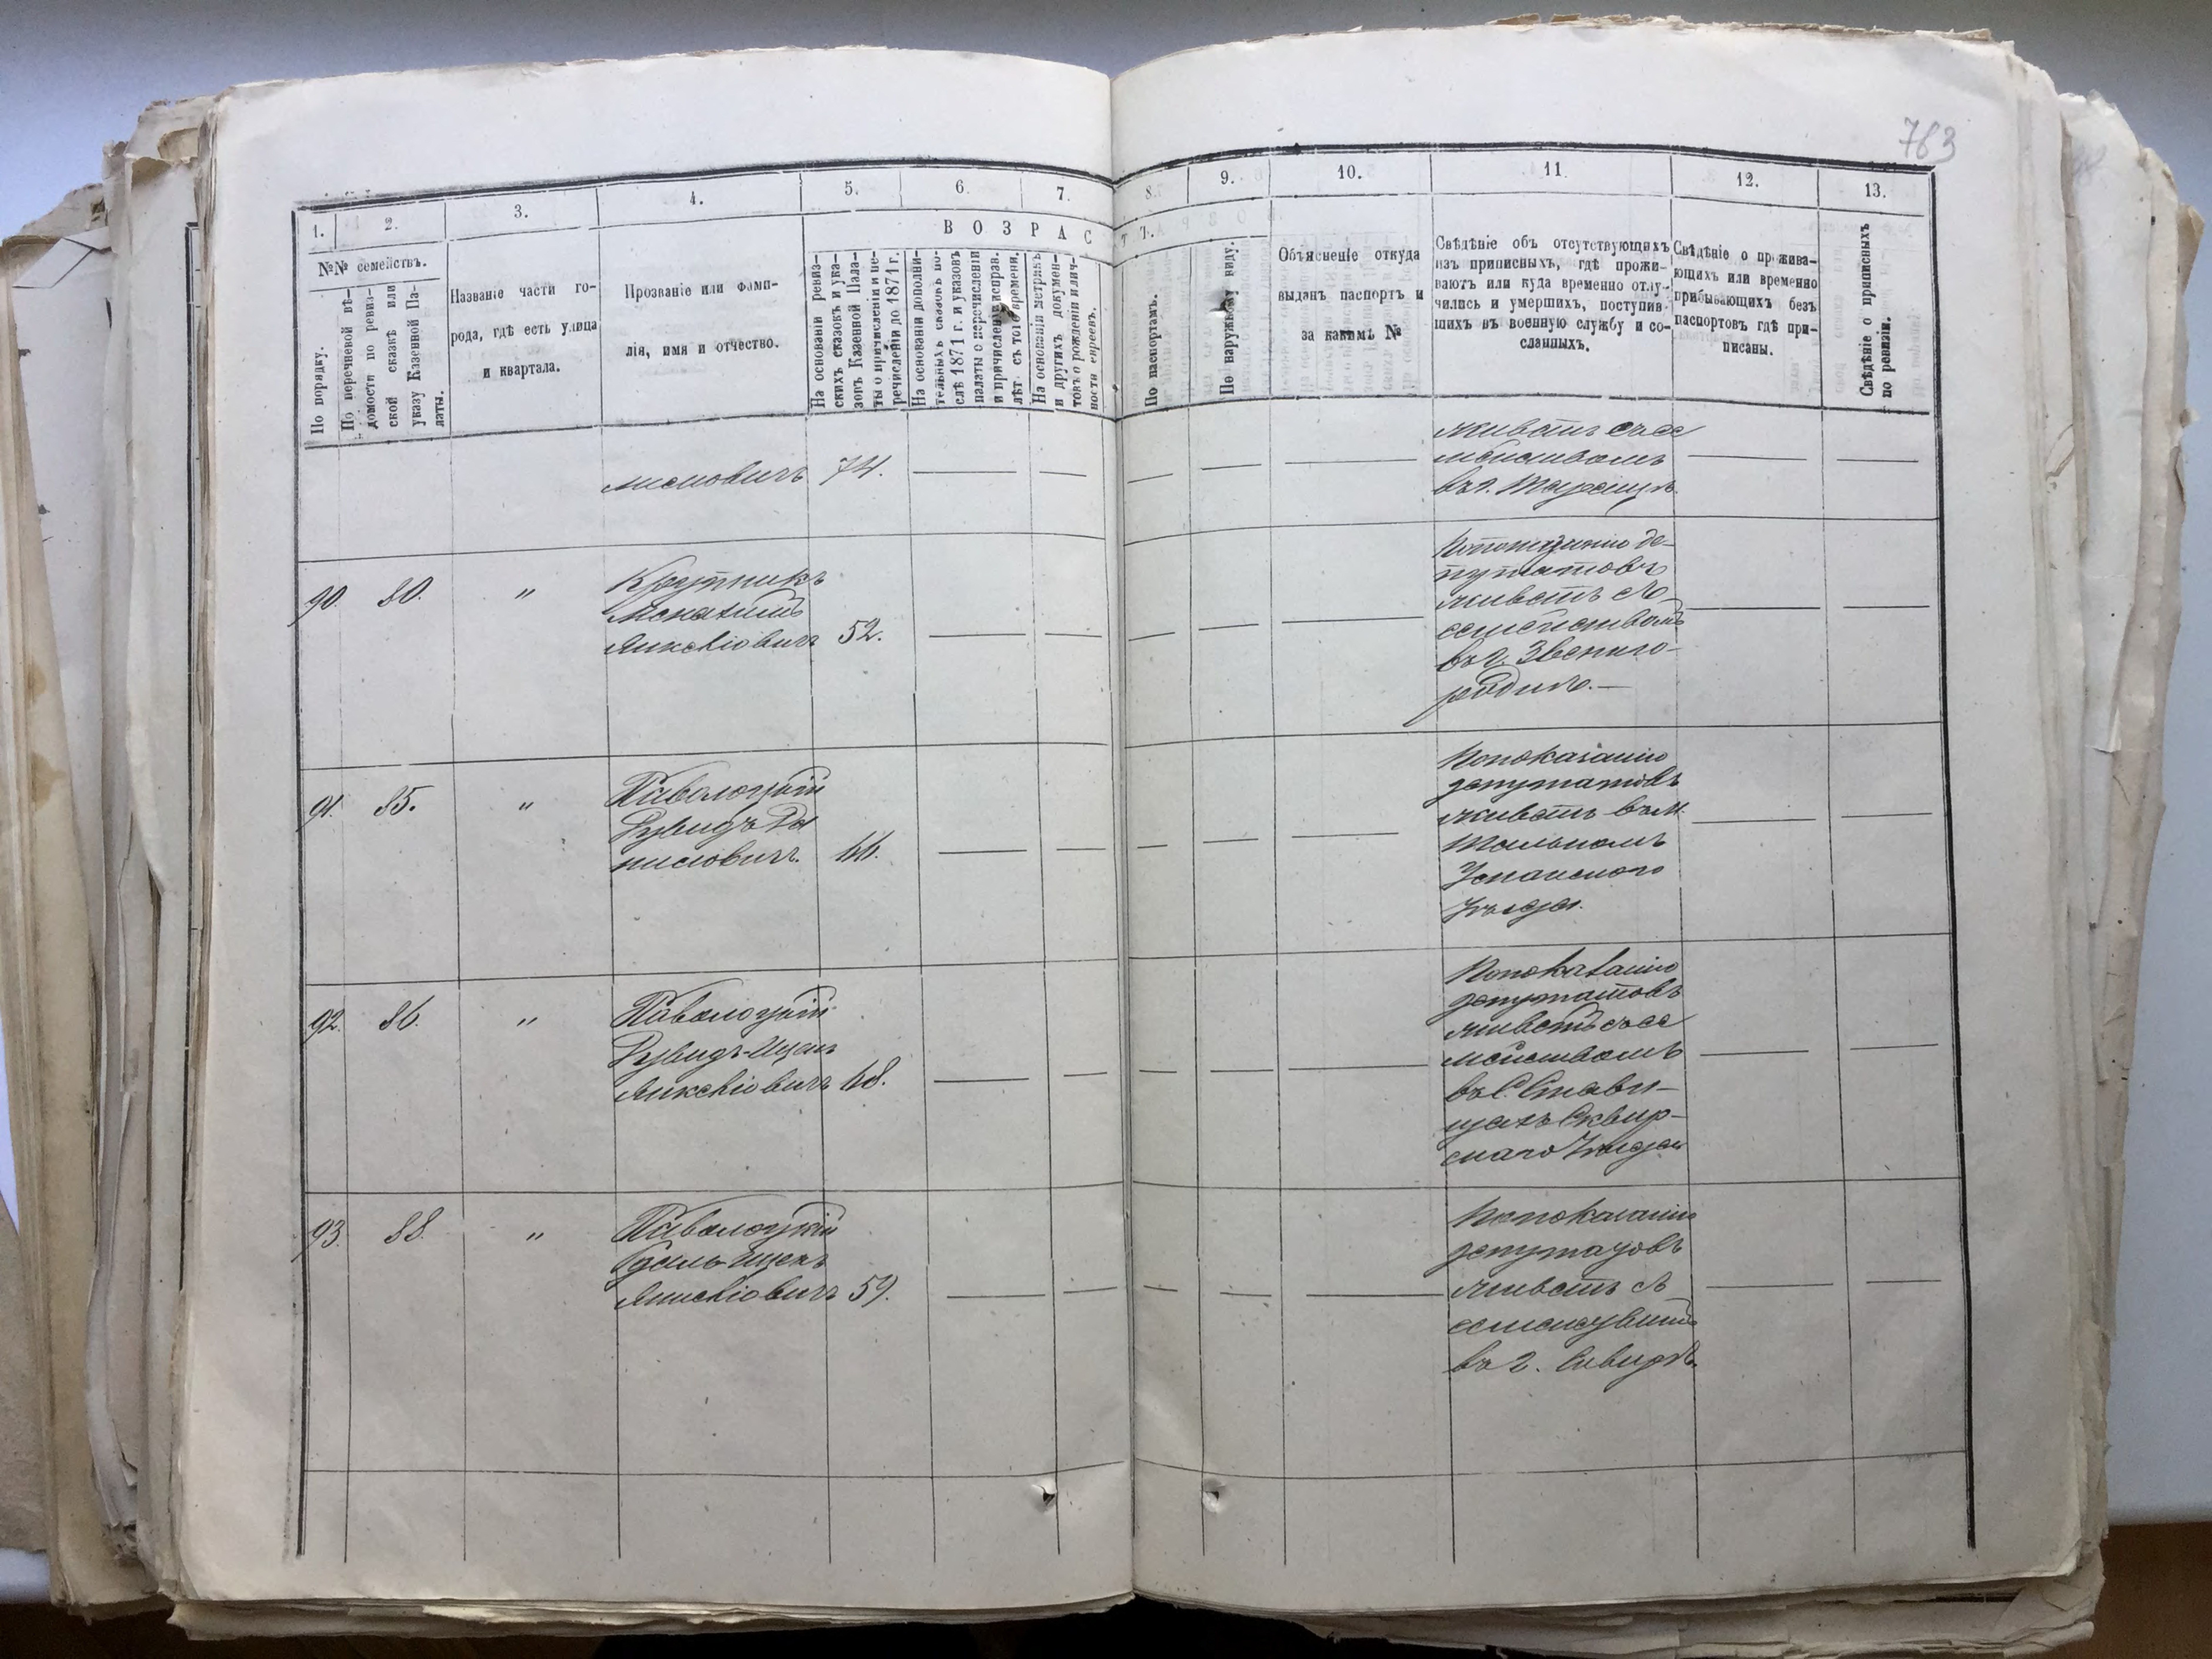 763
1.
2.
3.
4.
5.
6.
7.
8.
9.
10.
11.
12.
13.
№№ семействъ.
ВОЗРАС
ТЪ.
По порядку.
По перечневой вѣ-
домости по ревиз-
ской сказкѣ или
указу Казенной Па-
латы.
Названіе части го-
рода, гдѣ есть улица
и квартала.
Прозваніе или фами-
лія, имя и отчество.
На основаніи ревиз-
скихъ сказокъ и ука-
зовъ Казенной Пала-
ты о причисленіи и пе-
речисленіи до 1871 г.
На основаніи дополни-
тельныхъ сказокъ по-
слѣ 1871 г. и указовъ
палаты о перечисленіи
и причисленіи исправ.
лѣт. съ того времени.
На основаніи метрикъ
и другихъ докумен-
товъ о рожденіи и лич-
ности евреевъ.
По паспортамъ.
По наружному виду.
Объясненіе откуда
выданъ паспортъ и
за какимъ №
Свѣдѣніе объ отсутствующихъ
изъ приписныхъ, гдѣ прожи-
ваютъ или куда временно отлу-
чились и умершихъ, поступив-
шихъ въ военную службу и со-
сланныхъ.
Свѣдѣніе о прожива-
ющихъ или временно
прибывающихъ безъ
паспортовъ гдѣ при-
писаны.
Свѣдѣніе о приписныхъ
по ревизіи.
74.
живетъ съ се
мействомъ
въ г. Таращѣ.
90. 80. "
52.
По показанію де-
путатовъ
живетъ съ
семействомъ
въ г. Звениго-
родкѣ.
91. 85. "
Паволоцкій
66.
По показанію
депутатовъ
живетъ въ м.
Тальномъ
Уманскаго
Уѣзда.
92. 86. "
Паволоцкій
68.
По показанію
депутатовъ
живетъ съ се
мействомъ
въ С. Стави-
щахъ Сквир-
скаго Уѣзда
93. 88. "
Паволоцкій
59.
По показанію
депутатовъ
живетъ съ
въ г. Сквирѣ.